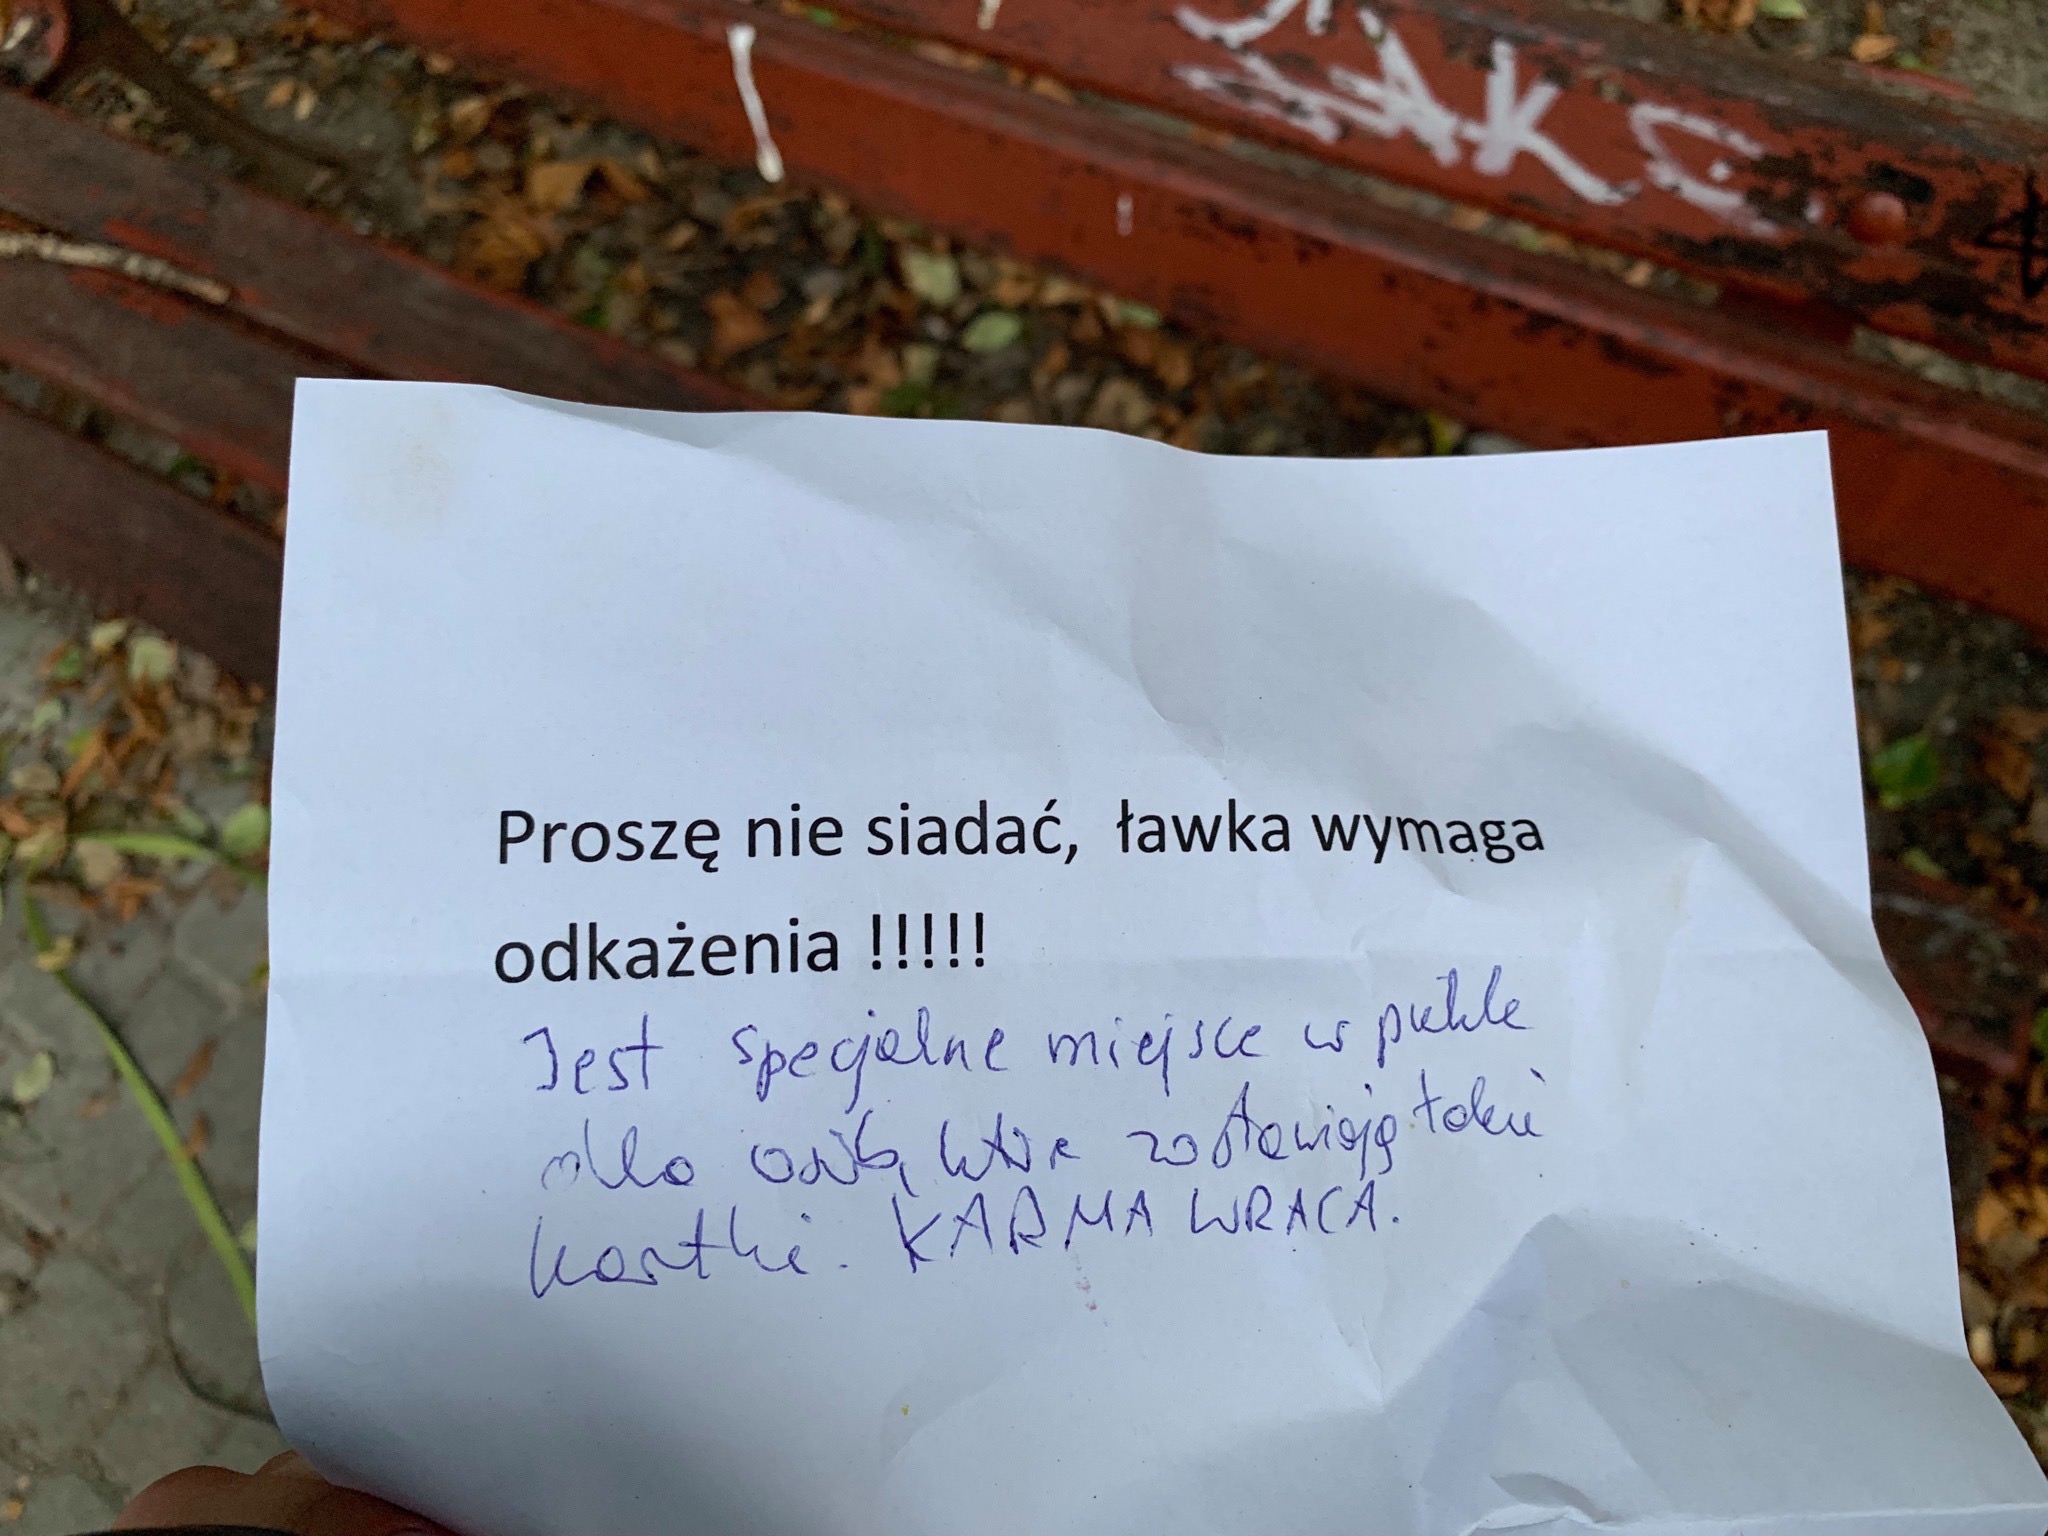 Proszę nie siadać, ławka wymaga
odkażenia !!!!!
Jest specjalne miejsce w piekle
dla osób, które zostawiają takie
kartki. KARMA WRACA.